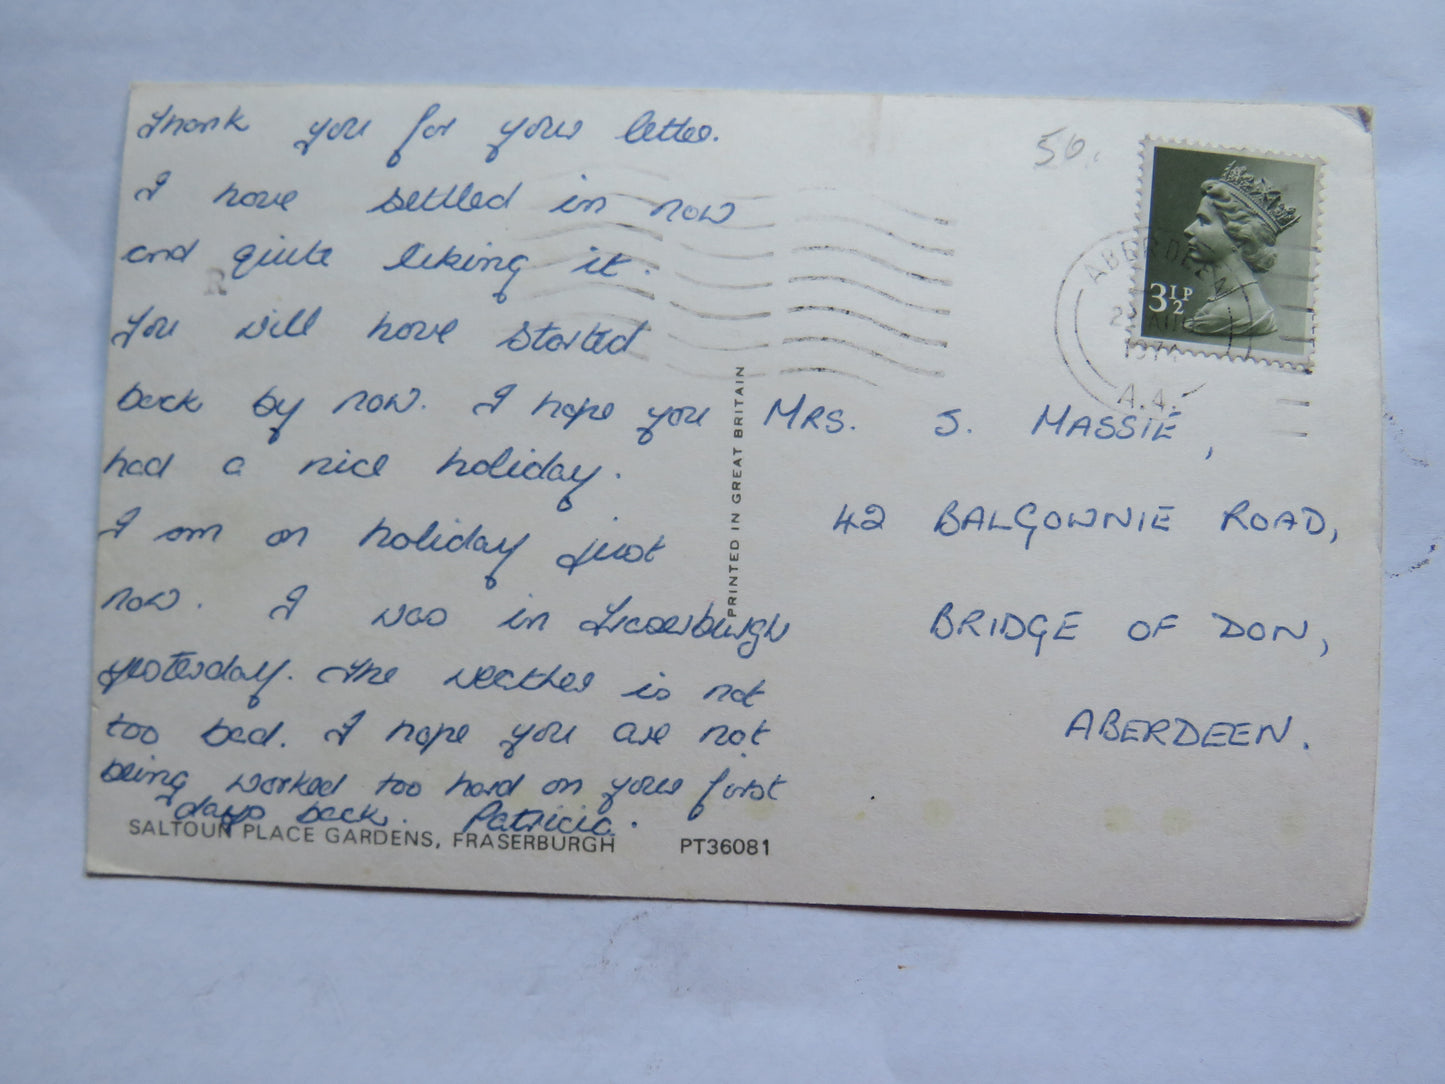 Thank you for your letter.
I have settled in now
and quite liking it.
You will have started
back by now. I hope you
had a nice holiday.
I am on holiday just
now. I was in Fraserburgh
yesterday. The weather is not
too bad. I hope you are not
being worked too hard on your first
days back. Patricia.
SALTOUN PLACE GARDENS, FRASERBURGH PT36081
PRINTED IN GREAT BRITAIN
R
50.
3½P
ABERDEEN
AUG
1974
A.4.
MRS. S. MASSIE,
42 BALGOWNIE ROAD,
BRIDGE OF DON,
ABERDEEN.